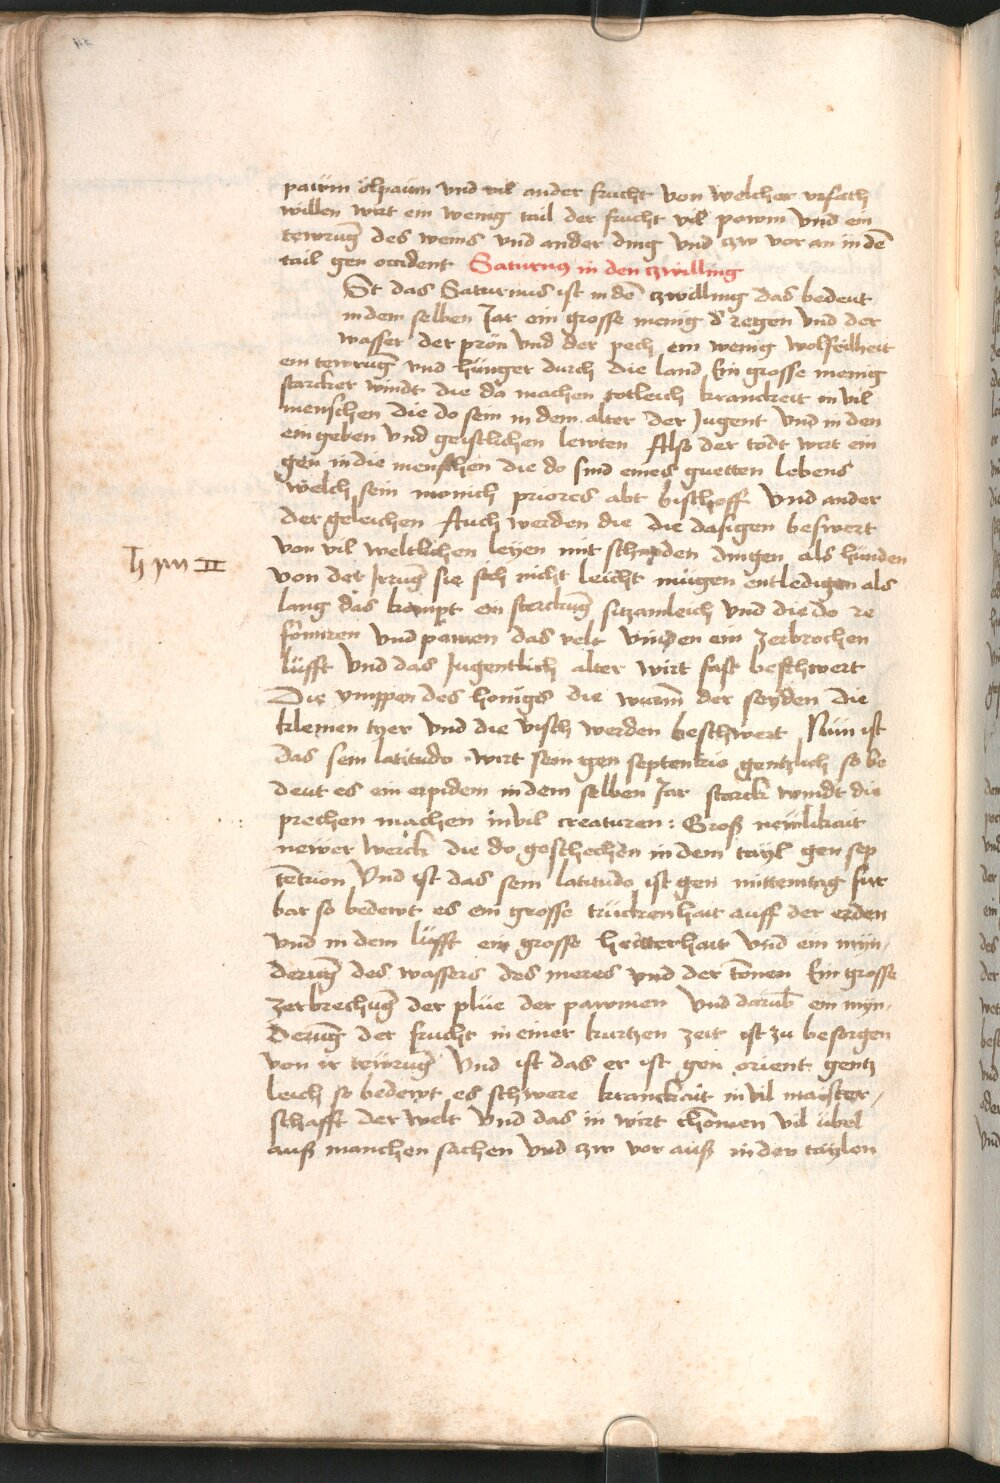 pawm ölpaum vnd vil ander frucht von welcher vrsach
willen wirt ein wenig tail der frucht vil pawm vnd ein
tewrūg des weins vnd ander ding vnd czw vor an in dē
tail gen occident Saturnus in den zwilling
St das Saturnus ist in dē zwilling das bedeut
in dem selben Jar ein grosse menig d̄ regen vnd der
wasser der prön vnd der pech ein wenig wolfeilheit
ein tewrūg vnd hünger durch die land Ein grosse menig
starcker windt die da machen totleich kranckeit in vil
menschen die do sein in dem alter der Jugent vnd in den
ein geben vnd geistlichen lewten Also der todt wirt ein
gen in die menschen die do sind eines guetten lebens
welch sein monich priores abt bischoff vnd ander
der geleichen Auch werden die die dasigen beswert
von vil weltlichen leyen mit schnoden dingen als hunden
von der Irrūg sie sich nicht leicht mügen entledigen als
lang das kompt ein sterckūg sitzamleich vnd die do re
formiren vnd pawen das velt vinden ein zerbrochen
lüfft vnd das Jugentlich alter wirt fast beschwert
Die ymppen des honigs die wurm der seyden die
kleinen tyer vnd die visch werden beschwert Nün ist
das sein latitudo wirt sein gen septentrio gentzlich so be
deut es ein erpidem in dem selben Jar starck windt die
prechen machen in vil creaturen : Groß newikait
newer werck die do geschechen in dem tayl gen sep
tētrion Vnd ist das sein latitudo ist gen mittemtag fur
bar so bedewt es ein grosse trückenhait auff der erden
vnd in dem lüfft ein grosse heitterhait vnd ein myn,
derūg des wassers des meres vnd der tonen Ein grosse
zerbrechūg der plüe der pawmen vnd darūb ein myn,
derūg der frucht in einer kurtzen zeit ist zu besorgen
von ir tewrūg Vnd ist das er ist gein orient gentz
leich so bedewt es schwere kranckait in vil maister,
schafft der welt vnd das in wirt chomen vil übel
auß manchen sachen vnd czw vor auß in den taylen
♄ ym ♊